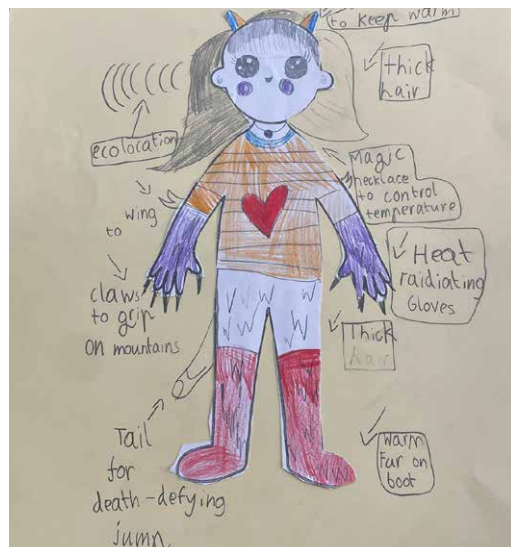 to keep warm
thick
hair
ecolocation
Magic
necklace
to control
temperature
wing
to
Heat
raidiating
Gloves
claws
to grip
on mountains
Thick
hair
Tail
for
death-defying
jump
warm
Fur on
boot